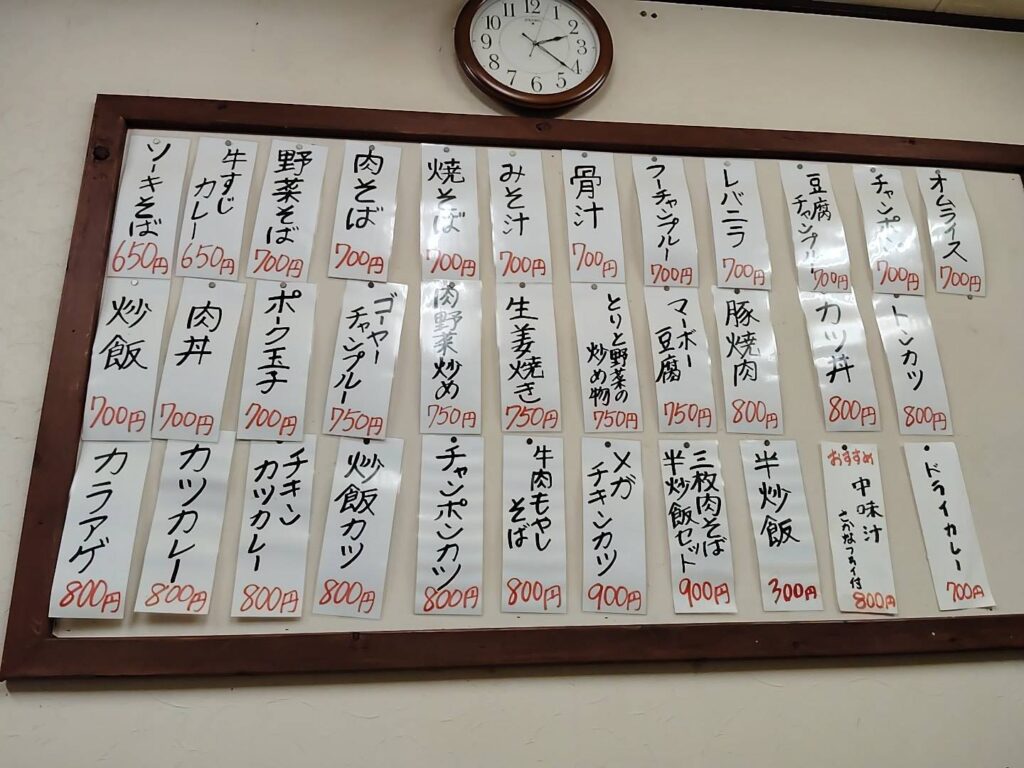 12
1
2
3
4
5
6
7
8
9
10
11
ソーキそば
650円
牛すじ
カレー
650円
野菜そば
700円
肉そば
700円
焼そば
700円
みそ汁
700円
骨汁
700円
フーチャンプルー
700円
レバニラ
700円
豆腐
チャンプルー
700円
チャンポン
700円
オムライス
700円
炒飯
700円
肉丼
700円
ポーク玉子
700円
ゴーヤー
チャンプルー
750円
肉野菜炒め
750円
生姜焼き
750円
とりと野菜の
炒め物
750円
マーボー
豆腐
750円
豚焼肉
800円
カツ丼
800円
トンカツ
800円
カラアゲ
800円
カツカレー
800円
チキン
カツカレー
800円
炒飯カツ
800円
チャンポンカツ
800円
牛肉もやし
そば
800円
メガ
チキンカツ
900円
三枚肉そば
半炒飯セット
900円
半炒飯
300円
おすすめ
中味汁
さかなフライ付
800円
ドライカレー
700円